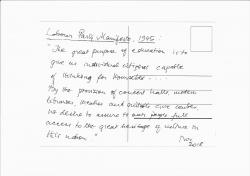 Labour Party Manifesto, 1945:
"The great purpose of education is to
give us individual citizens capable
of thinking for themselves....
By the provision of concert halls, modern
libraries, theatres and suitable civic centres,
we desire to assure to our people full
access to the great heritage of culture in
this nation"
2018